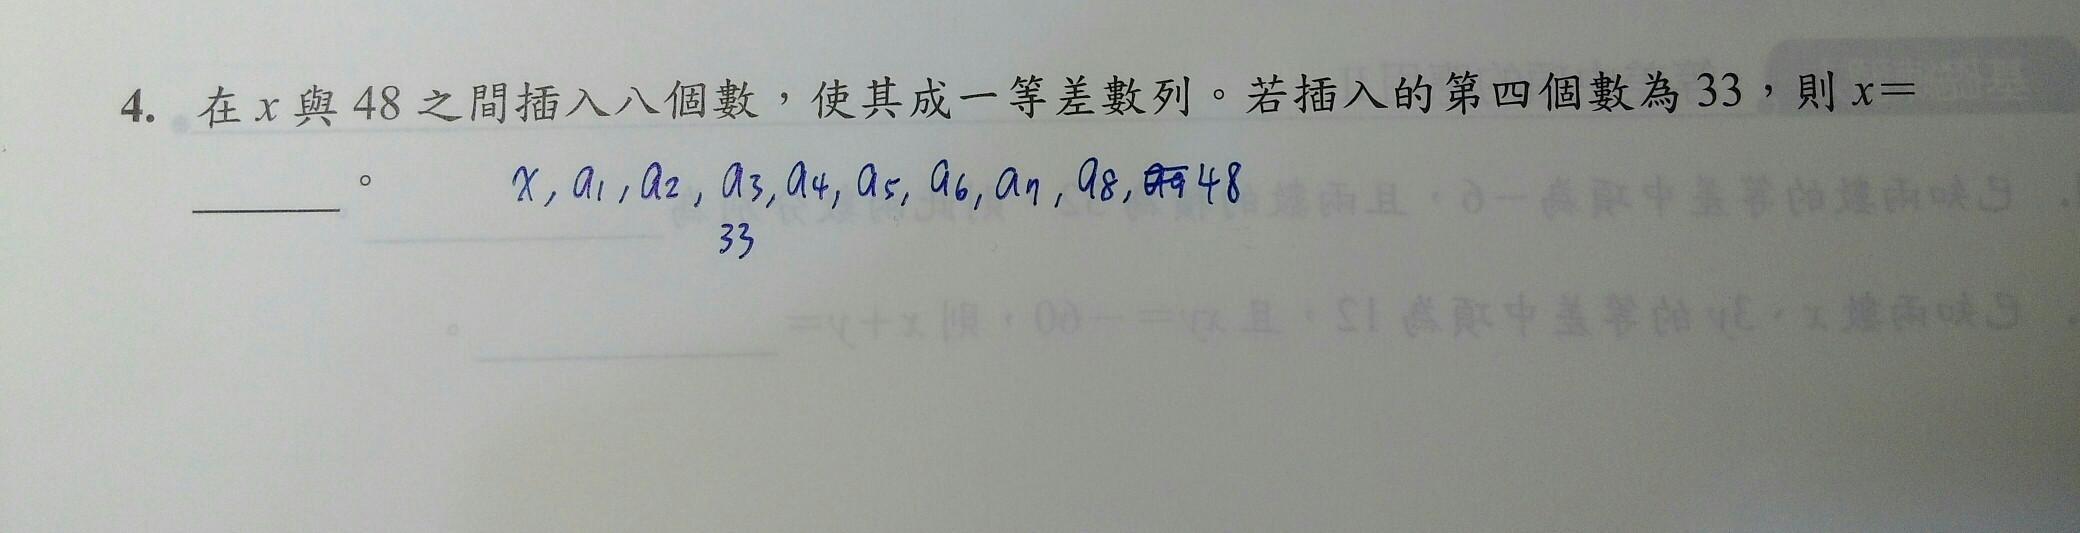 4. 在 x 與 48 之間插入八個數，使其成一等差數列。若插入的第四個數為 33，則 x=
______。 x, a1, a2, a3, a4, a5, a6, a7, a8, 48
33